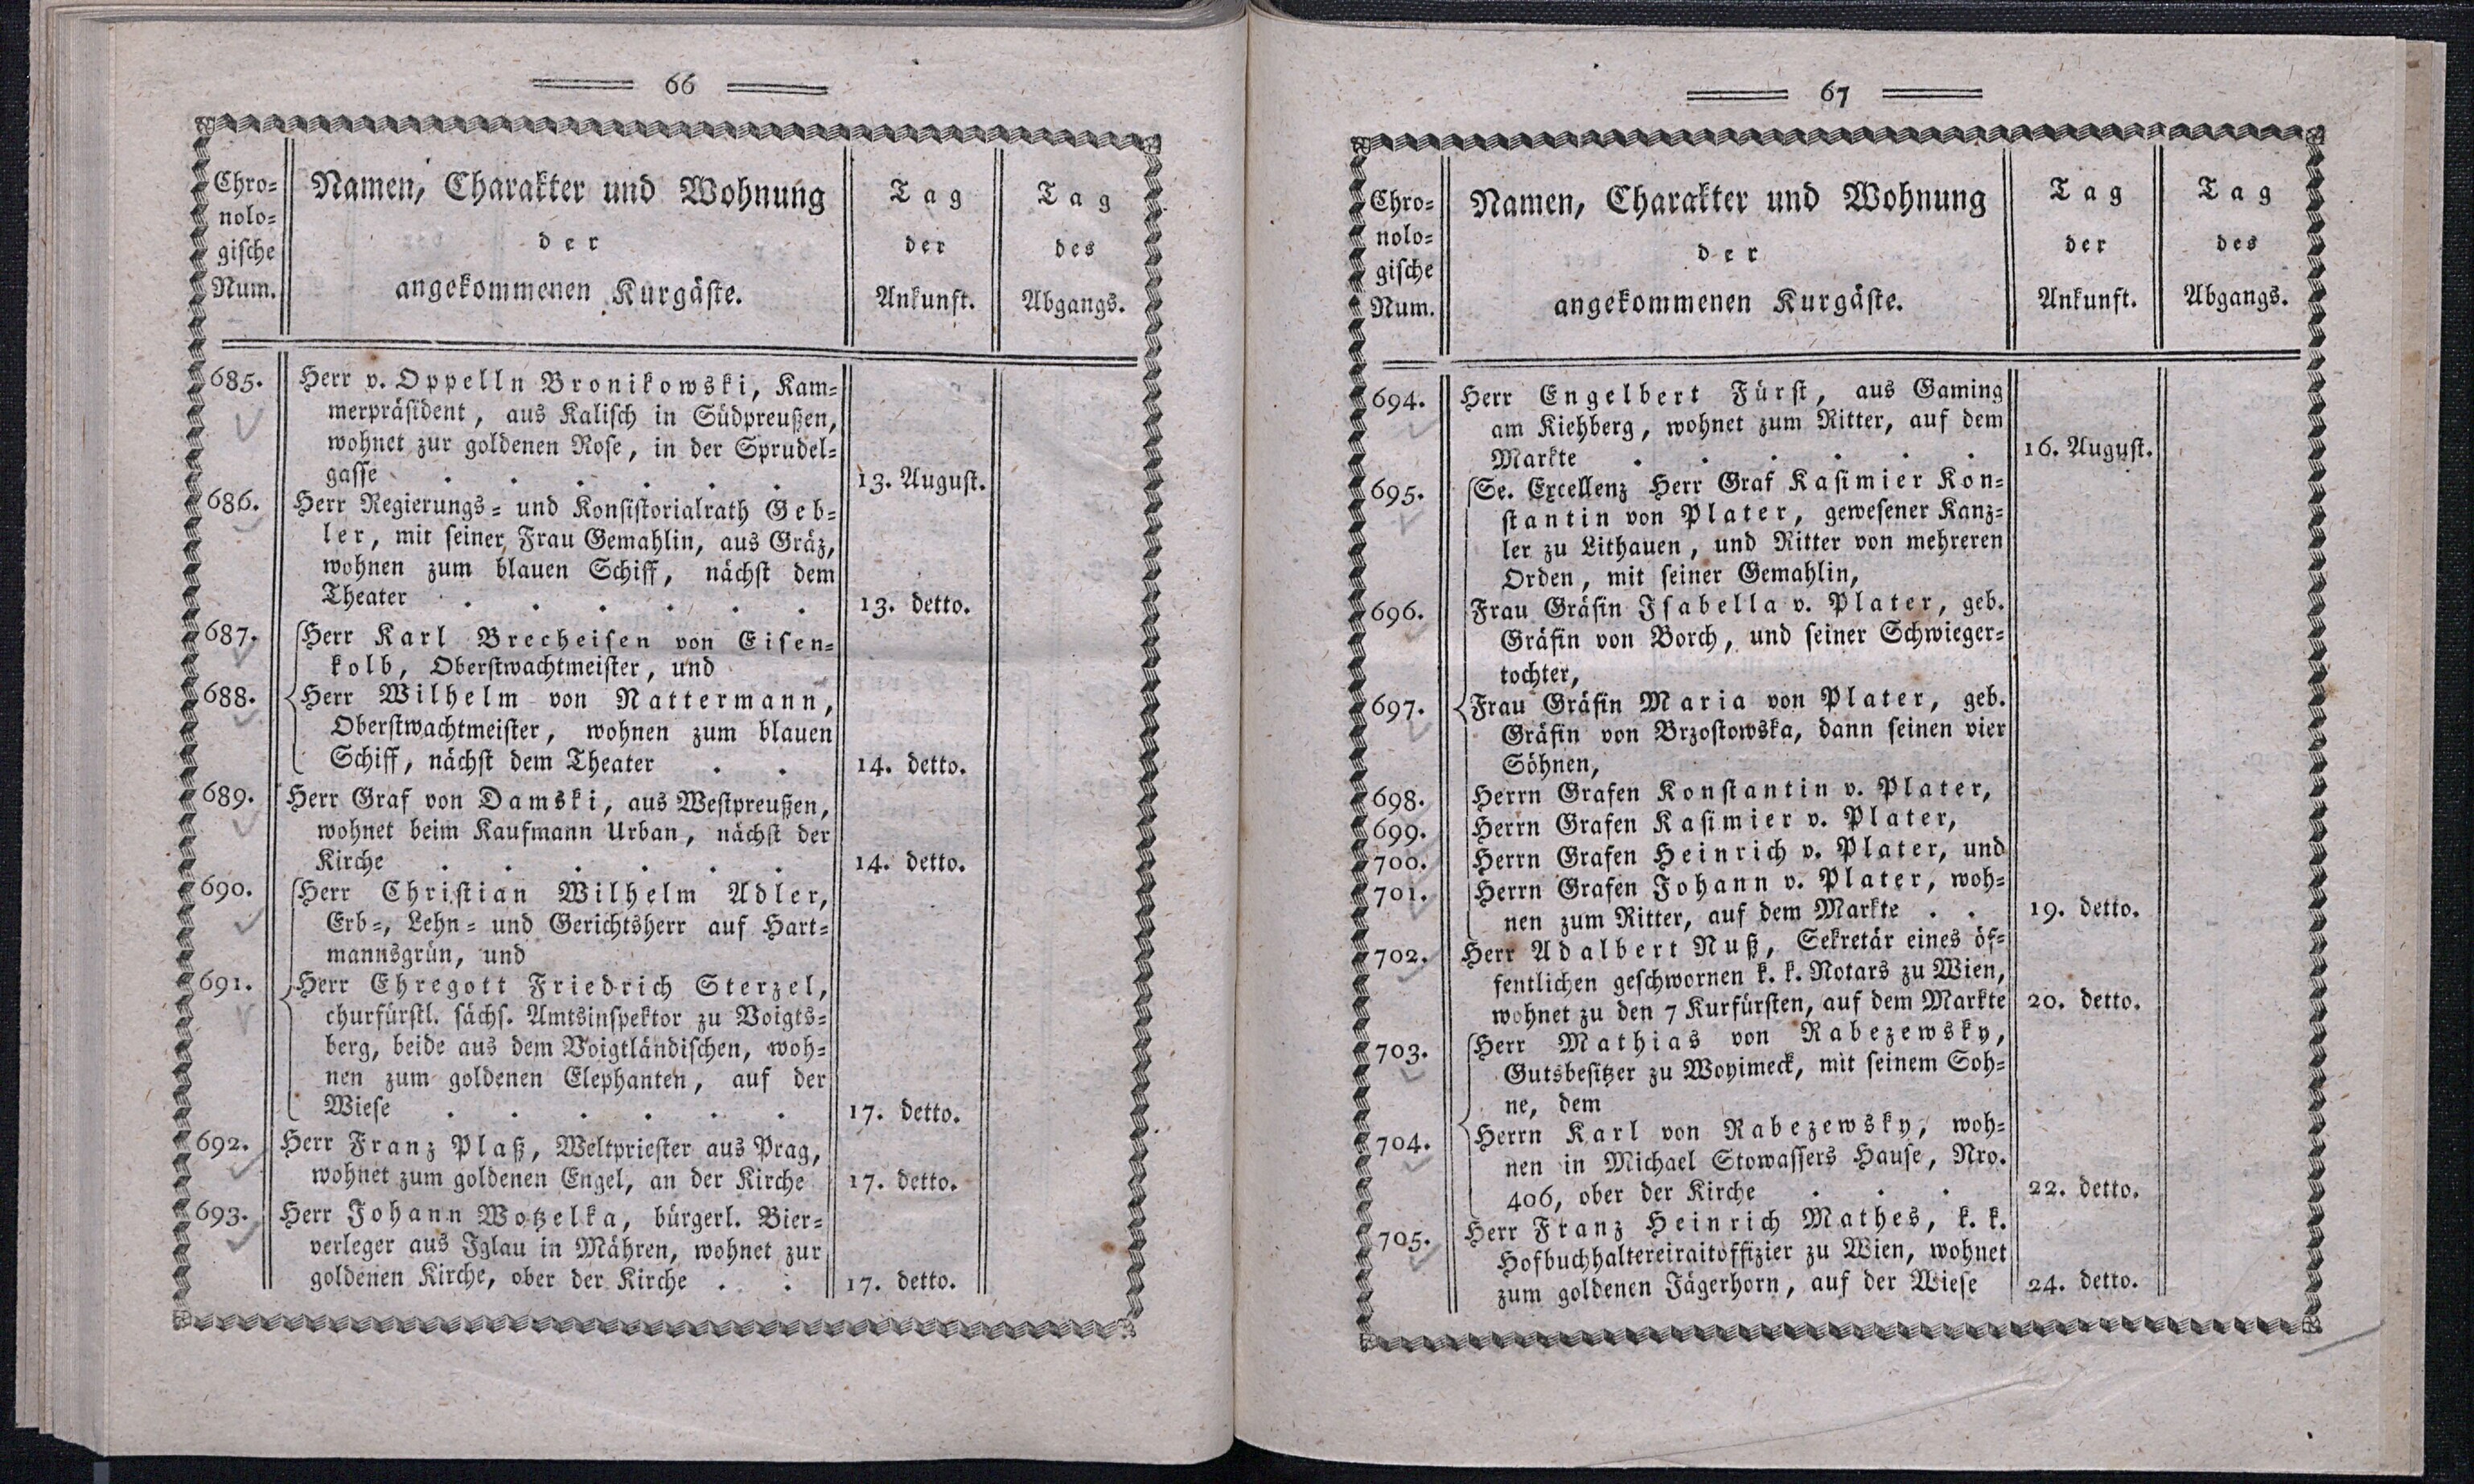 66
Chro-
nolo-
gische
Num.
Namen, Charakter und Wohnung
der
angekommenen Kurgäste.
Tag
der
Ankunft.
Tag
des
Abgangs.
685. Herr v. Oppelln Bronikowski, Kam-
merpräsident, aus Kalisch in Südpreußen,
wohnet zur goldenen Rose, in der Sprudel-
gasse . . . . . . 13. August.
686. Herr Regierungs- und Konsistorialrath Geb-
ler, mit seiner Frau Gemahlin, aus Gräz,
wohnen zum blauen Schiff, nächst dem
Theater . . . . . . 13. detto.
687. Herr Karl Brecheisen von Eisen-
kolb, Oberstwachtmeister, und
688. Herr Wilhelm von Nattermann,
Oberstwachtmeister, wohnen zum blauen
Schiff, nächst dem Theater . . 14. detto.
689. Herr Graf von Damski, aus Westpreußen,
wohnet beim Kaufmann Urban, nächst der
Kirche . . . . . . 14. detto.
690. Herr Christian Wilhelm Adler,
Erb-, Lehn- und Gerichtsherr auf Hart-
mannsgrün, und
691. Herr Ehregott Friedrich Sterzel,
churfürstl. sächs. Amtsinspektor zu Voigts-
berg, beide aus dem Voigtländischen, woh-
nen zum goldenen Elephanten, auf der
Wiese . . . . . . 17. detto.
692. Herr Franz Plaß, Weltpriester aus Prag,
wohnet zum goldenen Engel, an der Kirche 17. detto.
693. Herr Johann Wotzelka, bürgerl. Bier-
verleger aus Iglau in Mähren, wohnet zur
goldenen Kirche, ober der Kirche . . 17. detto.
67
Chro-
nolo-
gische
Num.
Namen, Charakter und Wohnung
der
angekommenen Kurgäste.
Tag
der
Ankunft.
Tag
des
Abgangs.
694. Herr Engelbert Fürst, aus Gaming
am Kiehberg, wohnet zum Ritter, auf dem
Markte . . . . . . 16. August.
695. Se. Excellenz Herr Graf Kasimier Kon-
stantin von Plater, gewesener Kanz-
ler zu Lithauen, und Ritter von mehreren
Orden, mit seiner Gemahlin,
696. Frau Gräfin Isabella v. Plater, geb.
Gräfin von Borch, und seiner Schwieger-
tochter,
697. Frau Gräfin Maria von Plater, geb.
Gräfin von Brzostowska, dann seinen vier
Söhnen,
698. Herrn Grafen Konstantin v. Plater,
699. Herrn Grafen Kasimier v. Plater,
700. Herrn Grafen Heinrich v. Plater, und
701. Herrn Grafen Johann v. Plater, woh-
nen zum Ritter, auf dem Markte . . 19. detto.
702. Herr Adalbert Nuß, Sekretär eines öf-
fentlichen geschwornen k. k. Notars zu Wien,
wohnet zu den 7 Kurfürsten, auf dem Markte 20. detto.
703. Herr Mathias von Rabezewsky,
Gutsbesitzer zu Woyimeck, mit seinem Soh-
ne, dem
704. Herrn Karl von Rabezewsky, woh-
nen in Michael Stowassers Hause, Nro.
406, ober der Kirche . . . 22. detto.
705. Herr Franz Heinrich Mathes, k. k.
Hofbuchhaltereiraitoffizier zu Wien, wohnet
zum goldenen Jägerhorn, auf der Wiese 24. detto.